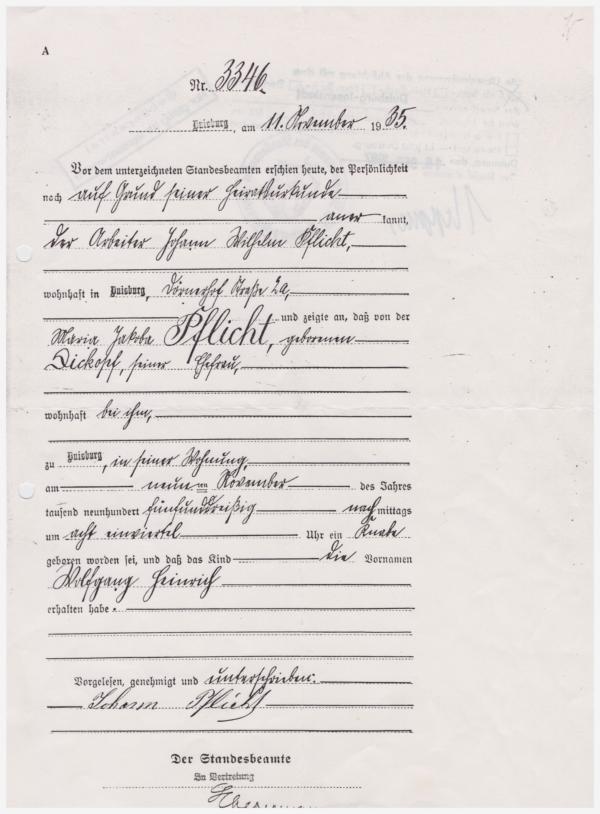 A
Nr. 3346.
Duisburg, am 11. November 1935.
Vor dem unterzeichneten Standesbeamten erschien heute, der Persönlichkeit
nach auf Grund seiner Heiratsurkunde
aner kannt,
der Arbeiter Johann Wilhelm Pflicht,
wohnhaft in Duisburg, Dörnerhof Straße 2a,
und zeigte an, daß von der
Maria Jakoba Pflicht, geborenen
Dickopf, seiner Ehefrau,
wohnhaft bei ihm,
zu Duisburg, in seiner Wohnung,
am neunten November des Jahres
tausend neunhundert fünfunddreißig nachmittags
um acht einviertel Uhr ein Knabe
geboren worden sei, und daß das Kind die Vornamen
Wolfgang Heinrich
erhalten habe.
Vorgelesen, genehmigt und unterschrieben.
Johann Pflicht
Der Standesbeamte
In Vertretung